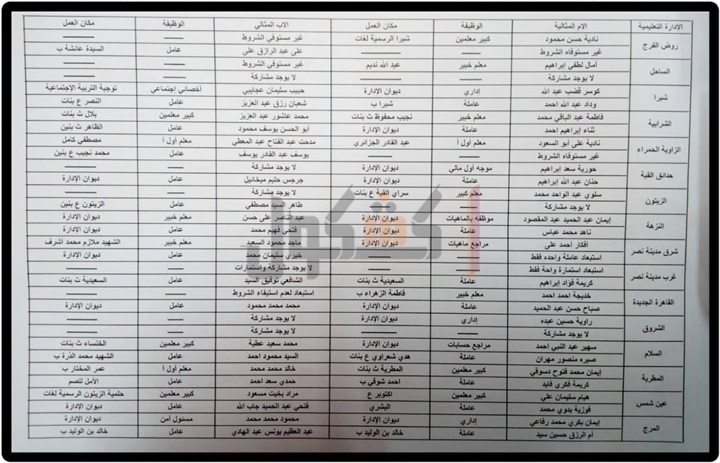 الإدارة التعليمية الام المثالية الوظيفة مكان العمل الاب المثالي الوظيفة مكان العمل
روض الفرج
نادية حسن محمود كبير معلمين شبرا الرسمية لغات غير مستوفي الشروط
غير مستوفاه الشروط على عبد الرازق على عامل السيدة عائشة ب
الساحل
أمال لطفي إبراهيم معلم خبير عبد الله نديم غير مستوفي الشروط
لا يوجد مشاركة لا يوجد مشاركة
شبرا
كوسر قضب عبد الله إداري ديوان الإدارة حبيب سليمان عجايبي أخصائي إجتماعي توجية التربية الإجتماعية
وداد عبد الله احمد عاملة شبرا ب شعبان رزق عبد العزيز عامل النصر ع بنات
الشرابية
فاطمة عبد الباقي محمد معلم خبير نجيب محفوظ ث بنات محمد عاشور عبد العزيز كبير معلمين بلال ث بنات
ثناء إبراهيم احمد عاملة ديوان الإدارة أبو الحسن يوسف محمود عامل الظاهر ث بنين
الزاوية الحمراء
نادية على أبو السعود معلم أول أ عبد القادر الجزائري مدحت عبد الفتاح عبد المعطي معلم أول أ مصطفي كامل
غير مستوفاه الشروط يوسف عبد القادر يوسف عامل محمد نجيب ع بنين
حدائق القبة
حورية سعد إبراهيم موجه أول مالي ديوان الإدارة لا يوجد مشاركة
حنان عبد الله إبراهيم عاملة ديوان الإدارة جرجس حليم ميخائيل عامل ديوان الإدارة
الزيتون
سلوي عبد الواحد محمد معلم كبير سراي القبة ع بنات لا يوجد مشاركة
لا يوجد مشاركة طاهر السيد مصطفي عامل الزيتون ع بنين
النزهة
إيمان عبد الحميد عبد المقصود موظفه بالماهيات ديوان الإدارة عبد الناصر على حسن معلم خبير ديوان الإدارة
ناهد محمد عباس عاملة ديوان الإدارة فتحي فهيم محمد عامل ديوان الإدارة
شرق مدينة نصر
أفكار احمد علي مراجع ماهيات ديوان الإدارة ماجد محمود السعيد معلم خبير الشهيد ملازم محمد أشرف
استبعاد عاملة واحده فقط خيري سليمان محمد عامل ديوان الإدارة
غرب مدينة نصر
استبعاد استمارة واحة فقط لا يوجد مشاركة واستمارات
كريمة فؤاد إبراهيم عاملة السعيدية ث بنات الشافعي توفيق السيد عامل السعيدية ث بنات
القاهرة الجديدة
خديجة احمد احمد معلم خبير فاطمة الزهراء ب استبعاد لعدم استيفاء الشروط
صباح حسن عبد الحميد عاملة ديوان الإدارة محمد محمد محمود عامل ديوان الإدارة
الشروق
راوية حسين عبده إداري ديوان الإدارة لا يوجد مشاركة
لا يوجد مشاركة لا يوجد مشاركة
السلام
سهير عبد النبي احمد مراجع حسابات ديوان الإدارة محمد سعيد عطية كبير معلمين الخنساء ث بنات
صبره منصور مهران عاملة هدي شعراوي ع بنات السيد محمود احمد عامل الشهيد محمد الدرة ب
المطرية
إيمان محمد فتوح دسوقي كبير معلمين المطرية ث بنات خالد محمد محمد معلم أول أ عمر المختار ب
كريمة فكري فايد عاملة احمد شوقي ب حمدي سعد احمد عامل الأمل للصم
عين شمس
هيام سليمان علي كبير معلمين اكتوبر ع مراد بخيت مسعود كبير معلمين حلمية الزيتون الرسمية لغات
فوزية بدوي محمد عاملة البشري فتحي عبد الحميد جاب الله عامل ديوان الإدارة
المرج
إيمان بكري محمد رفاعي إداري ديوان الإدارة محمود محمد محمد مسئول أمن ديوان الإدارة
أم الرزق حسين سيد عاملة خالد بن الوليد ب عبد العظيم يونس عبد الهادي عامل خالد بن الوليد ب